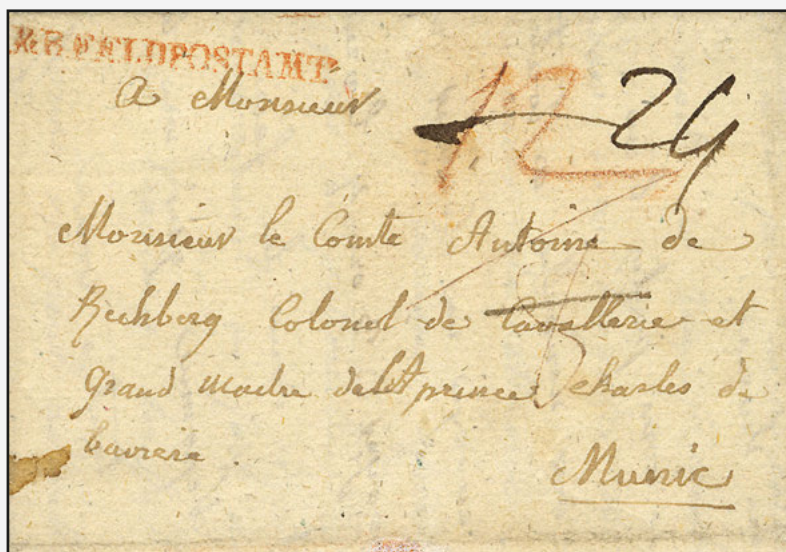 K.B. FELDPOSTAMT
a Monsieur
12 24
Monsieur le Comte Antoine de
Rechberg Colonel de Cavallerie et
grand maitre de prince charles de
baviere
Munic